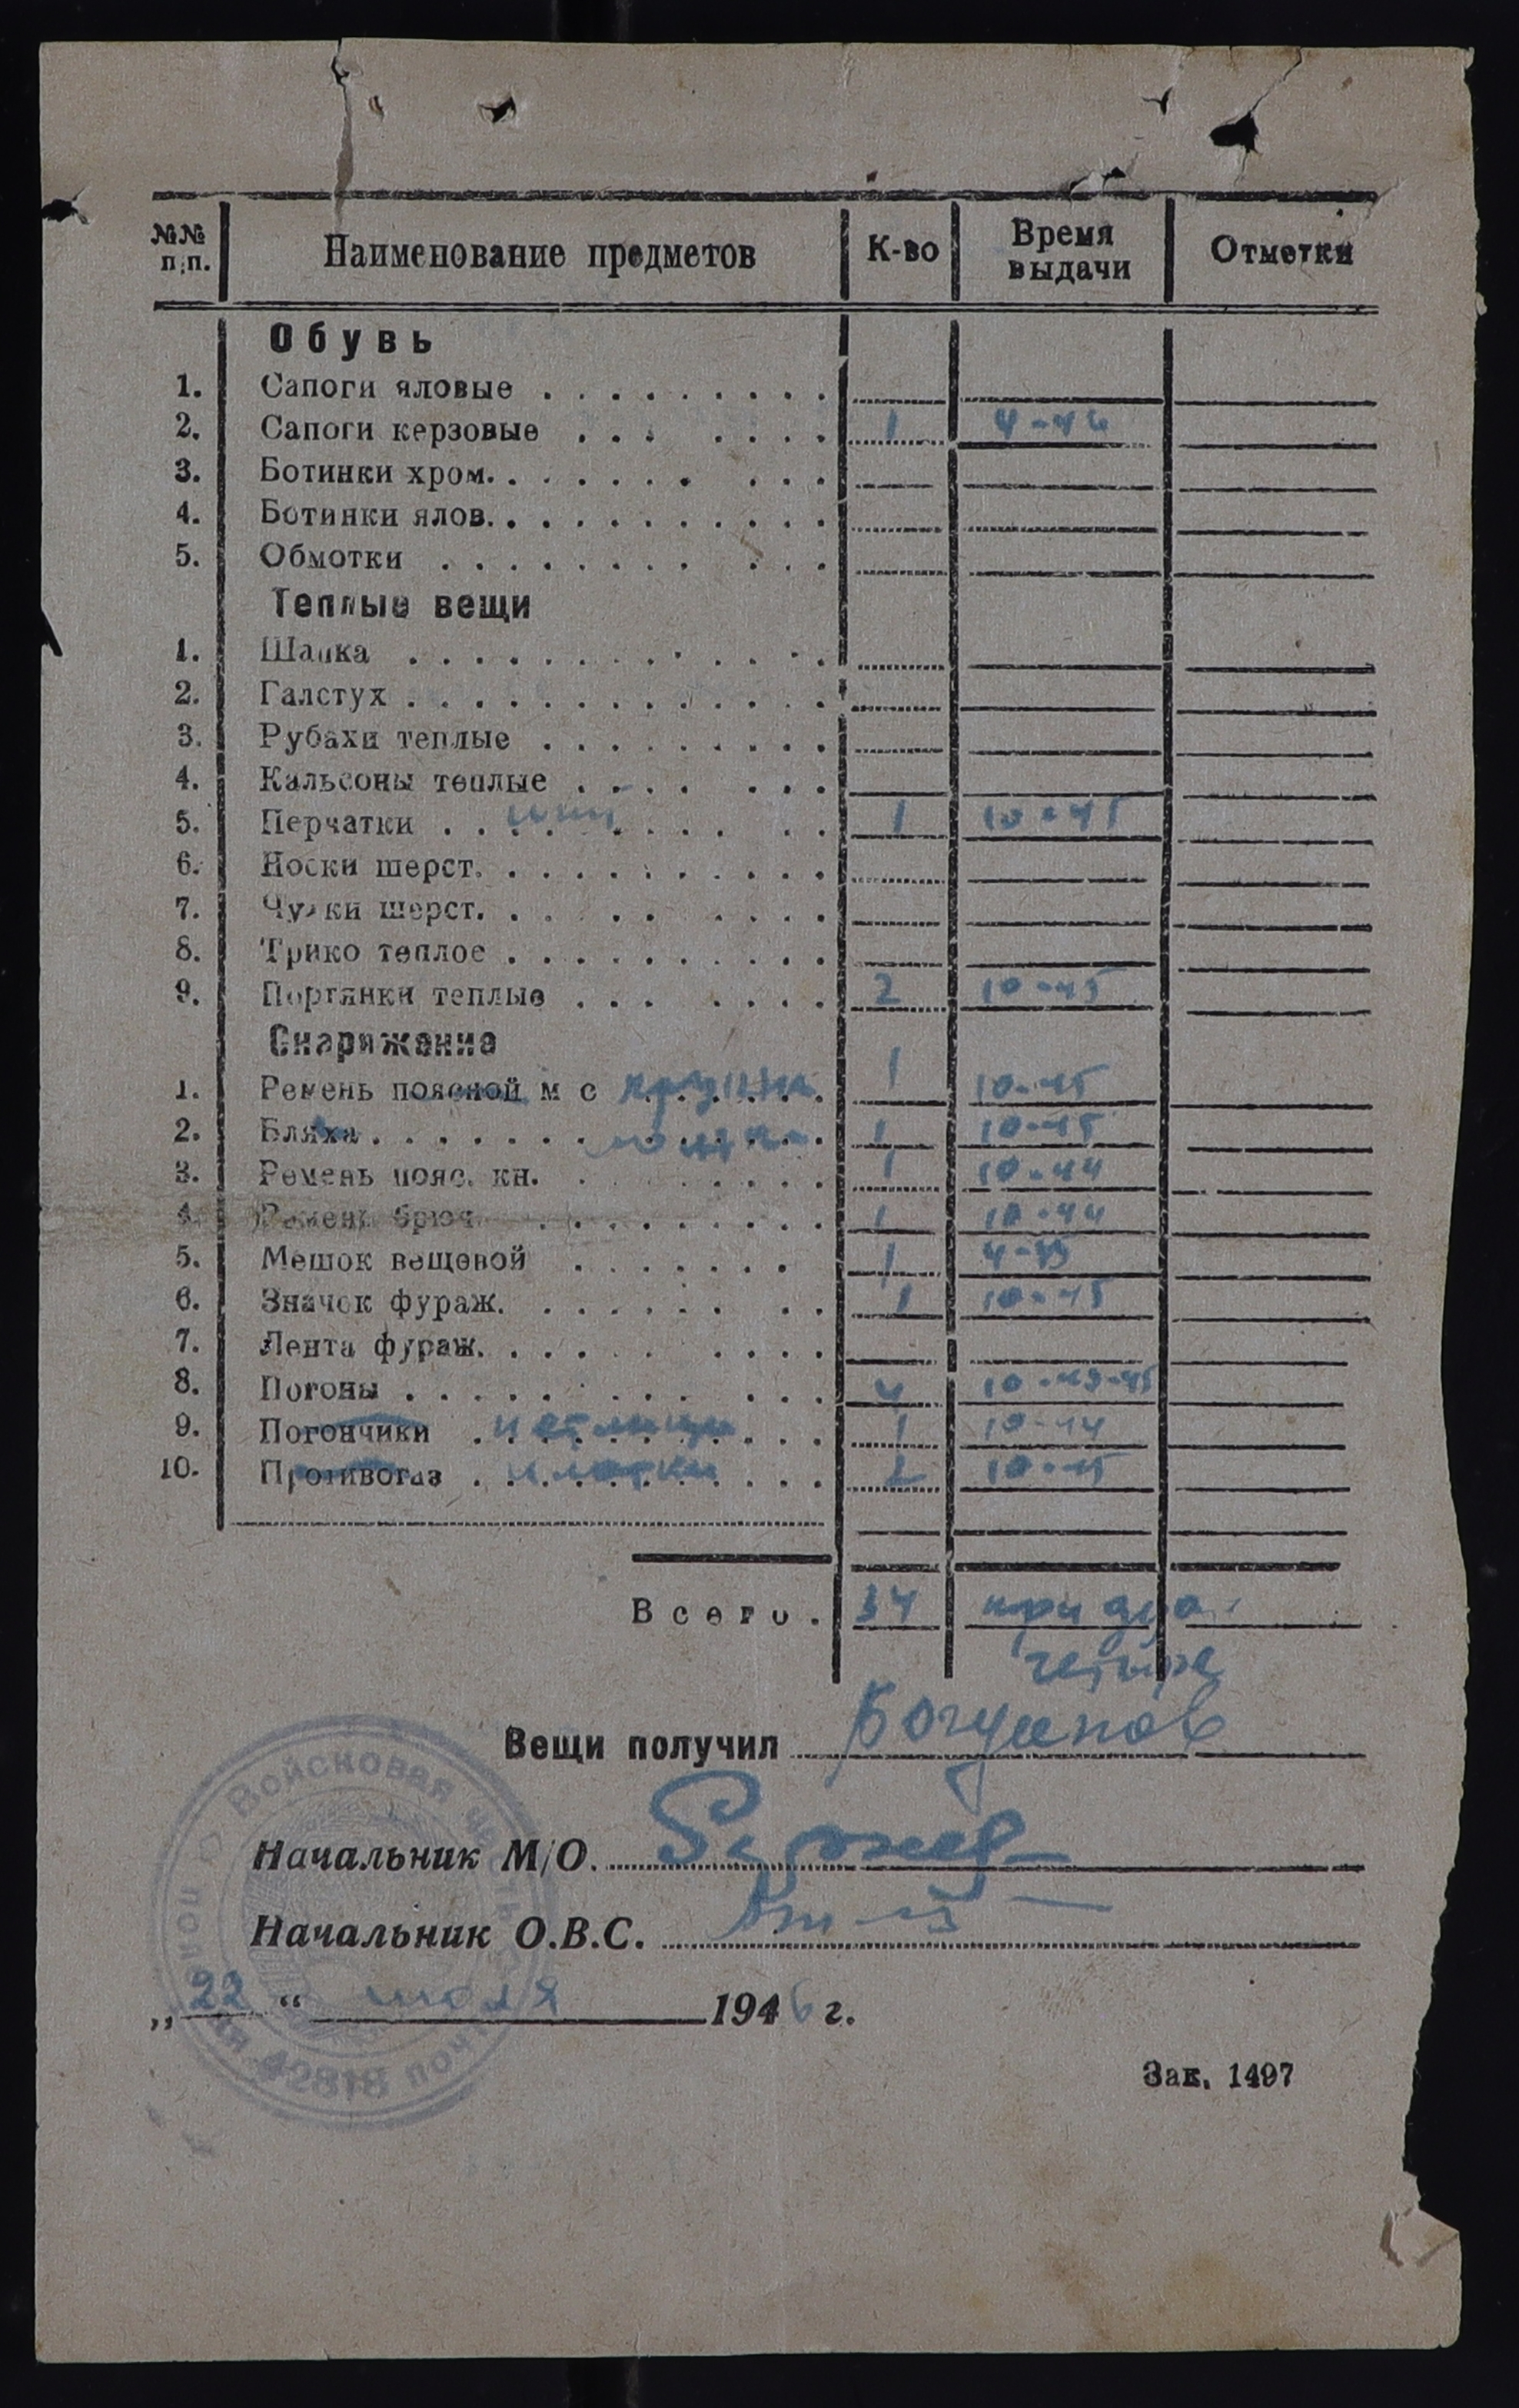 №№ п.п. Наименование предметов К-во Время выдачи Отметки
Обувь
1. Сапоги яловые . . . . . . . . .
2. Сапоги керзовые . . . . . . . 1 4-46
3. Ботинки хром. . . . . . . . . .
4. Ботинки ялов. . . . . . . . . . .
5. Обмотки . . . . . . . . . . .
Теплые вещи
1. Шапка . . . . . . . . . . . . .
2. Галстух . . . . . . . . . . . . .
3. Рубахи теплые . . . . . . . . .
4. Кальсоны теплые . . . . . . .
5. Перчатки . . . . . . . . . 1 10-45
6. Носки шерст. . . . . . . . . . .
7. Чулки шерст. . . . . . . . .
8. Трико теплое . . . . . . . . . .
9. Портянки теплые . . . . . . . 2 10-45
Снаряжение
1. Ремень поясной м с 1 10-45
2. Бляха . . . . . . . . . . . . . 1 10-45
3. Ремень пояс. кн. . . . . . . . 1 10-44
4. Ремень брюч. . . . . . . . . . 1 10-44
5. Мешок вещевой . . . . . . . 1 4-43
6. Значок фураж. . . . . . . . . 1 10-45
7. Лента фураж. . . . . . . . . .
8. Погоны . . . . . . . . . . . . 4 10-43-45
9. Погончики петлицы 1 10-44
10. Противогаз 2 10-45
Всего. 34 тридца
четыре
Вещи получил
Войсковая часть
Начальник М/О.
Начальник О.В.С.
„22“ июля 1946 г.
42818
Зак. 1497